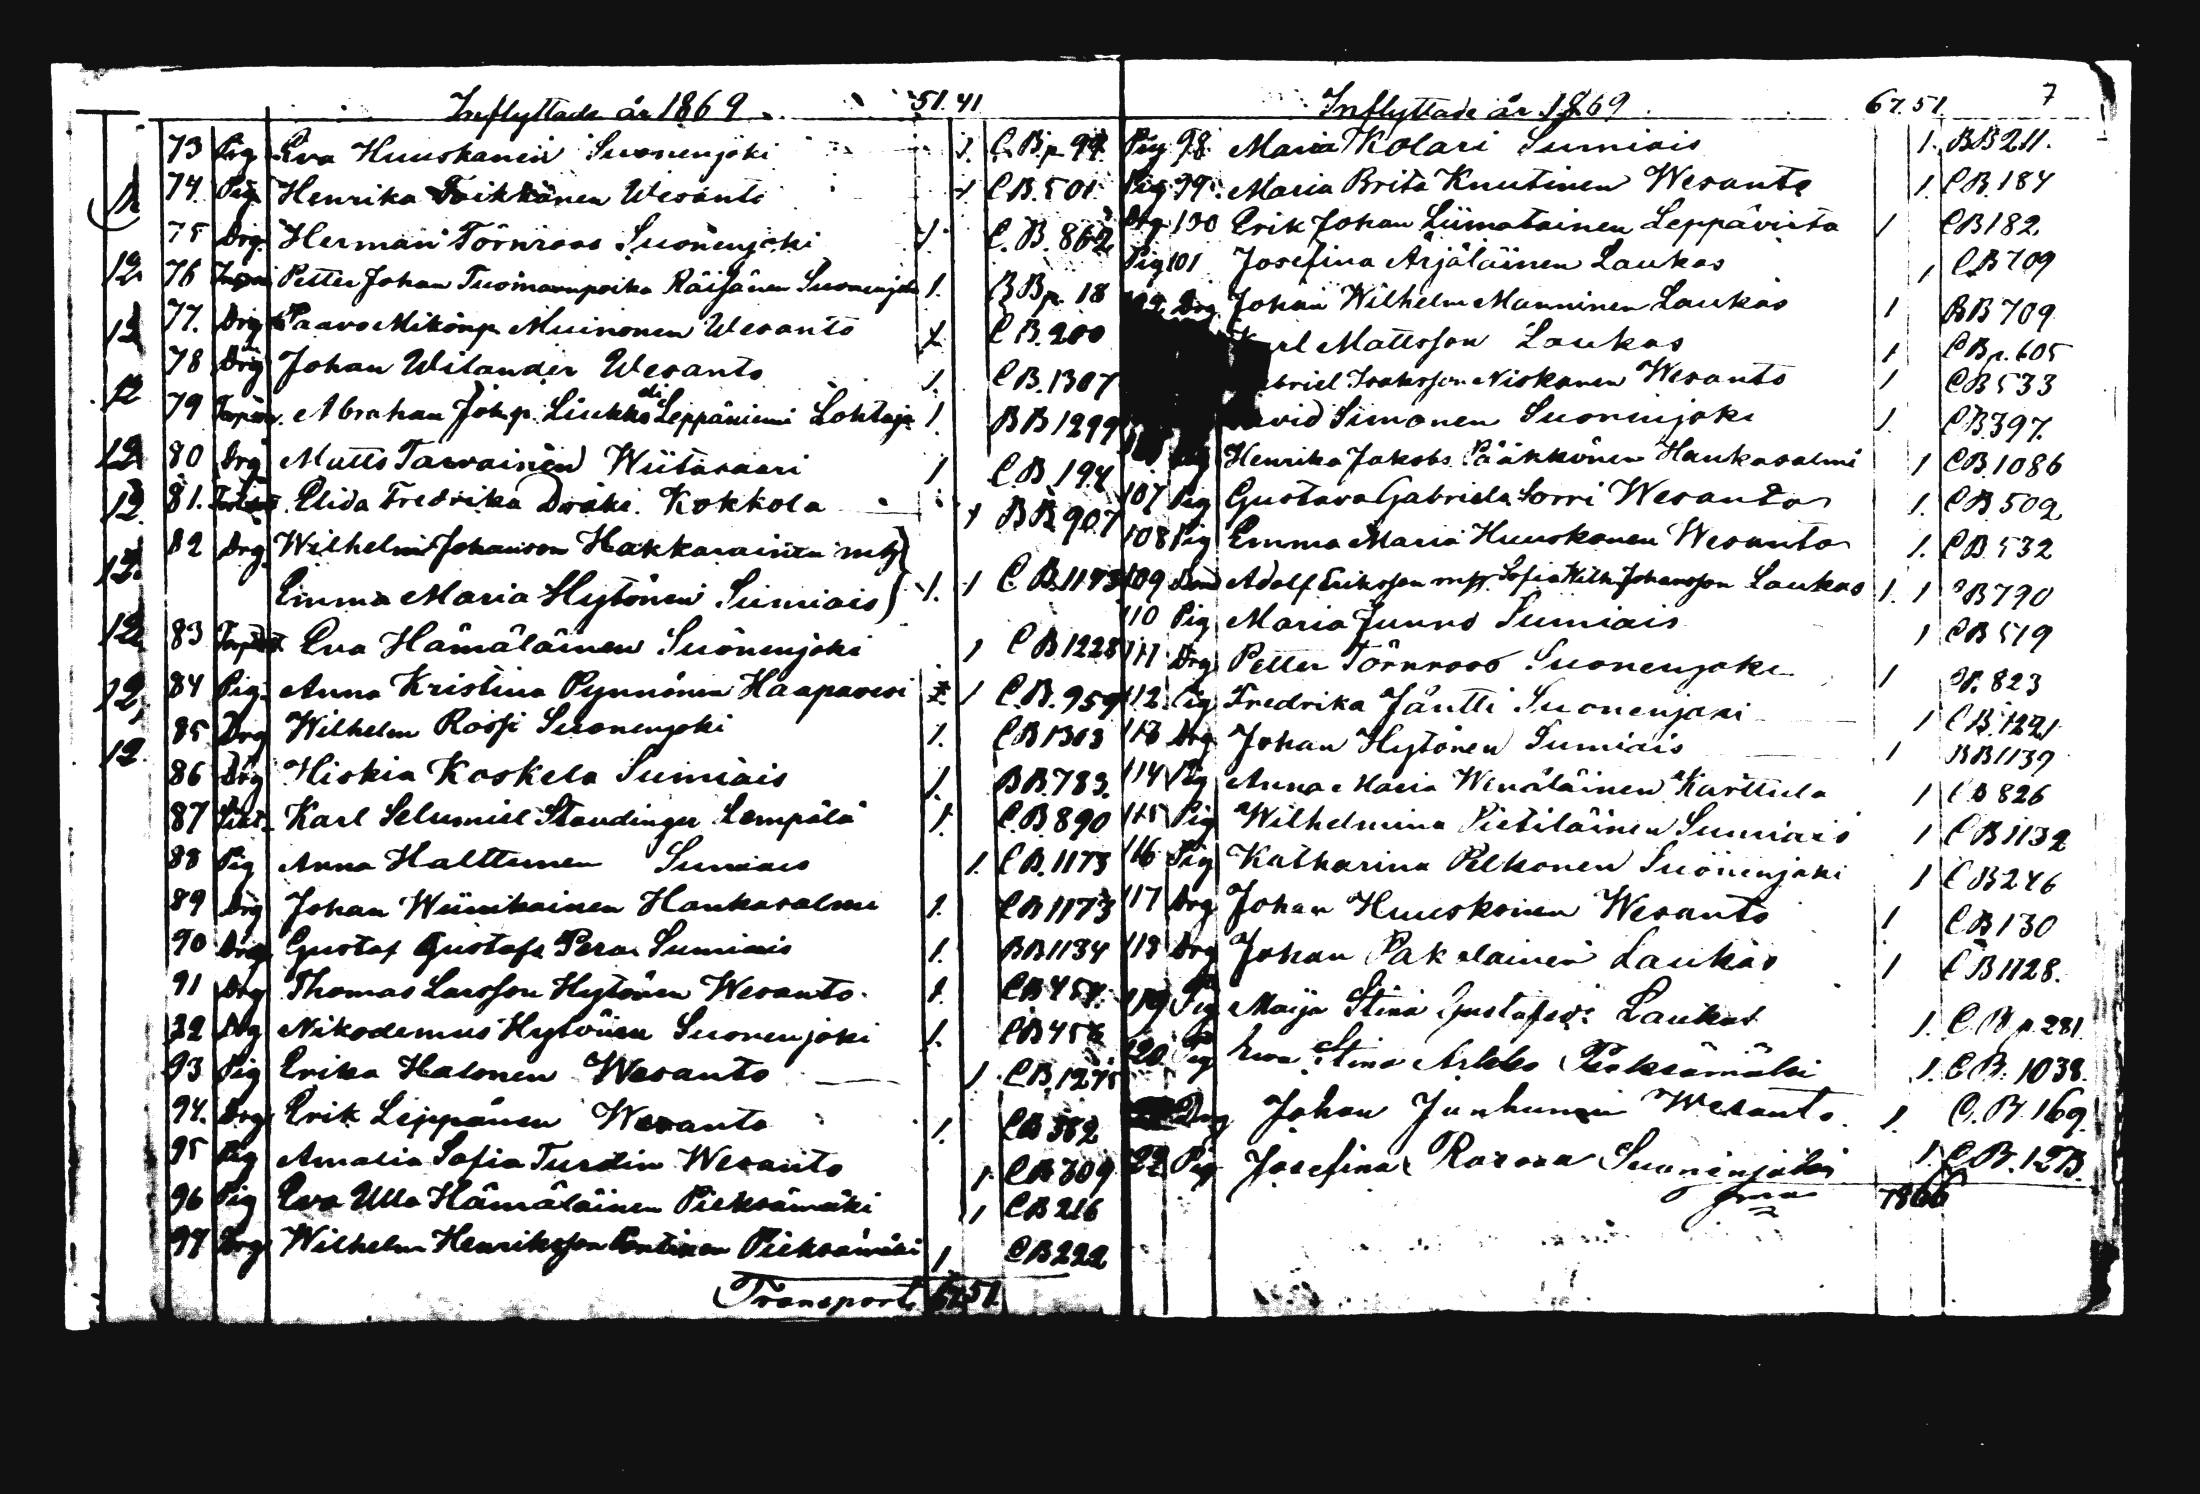 Inflyttade år 1869 51. 41
73 Pig Eva Huuskanen Suonenjoki 1. C.B.p. 99.
74. Pig Henrika Toikkanen Wesanto 1 C.B. 501.
12 75 Drg. Herman Törnroos Suonenjoki 1. C.B. 862
12 76 Petter Johan Tuomaanpoika Räisänen Suonenjoki 1. BB p. 18
77. Drg Paavo Mikonp. Muinonen Wesanto 1 C B. 200
12 78 Drg Johan Wilander Wesanto 1. C B. 1307
12 79 Abraham Joh.p. Liukko Leppäniemi Lohtaja 1. BB 1299
12 80 Drg Matts Tarvainen Wiitasaari 1 C.B. 194
12 81. Elida Fredrika Dråke. Kokkola 1 BB 907
12 82 Drg Wilhelm Johansson Hakkarainen m h
Emma Maria Hytönen Sumiais 1. 1 C.B. 1173
12 83 Eva Hämäläinen Suonenjoki 1 C B 1228
12 84 Pig. Anna Kristina Pynnönen Haapavesi 1 C.B. 959
12 85 Drg Wilhelm Rossi Suonenjoki 1. C B 1303
86 Drg Hiskia Koskela Sumiais 1. BB. 783.
87 Karl Selumiel Staudinger Lempälä 1. C.B. 890
88 Pig Anna Halttunen Sumiais 1. C B. 1173
89 Drg Johan Wiinikainen Hankasalmi 1. C B 1173
90 Drg Gustaf Gustafs. Pera Sumiais 1. BB 1134
91 Drg Thomas Larsson Hytönen Wesanto 1. C B 454.
92 Drg Nikodemus Hytönen Suonenjoki 1. C B 456
93 Pig Erika Halonen Wesanto 1. C B. 1275
94. Drg Erik Leppänen Wesanto 1. C B 382
95 Pig Amalia Sofia Turdin Wesanto 1. C B 309
96 Pig Eva Ulla Hämäläinen Pieksämäki 1 C B 216
97 Drg Wilhelm Henriksson Pieksämäki 1 C B 222
Transport 67. 51.
Inflyttade år 1869 67. 51. 7
Pig 98 Maria Kolari Sumiais 1. BB 211.
Pig 99. Maria Brita Knutinen Wesanto 1. C B. 184
Drg 100 Erik Johan Liimatainen Leppävirta 1 C B 182
Pig 101 Josefina Arjäläinen Laukas 1 C B 709
102 Drg Johan Wilhelm Manninen Laukas 1 BB 709
Karl Mattsson Laukas 1 C B p. 605
Gabriel Isaksson Niskanen Wesanto 1 C B 533
David Simonen Suonenjoki 1. C B. 397.
Henrika Jakobs. Pääkkönen Hankasalmi 1 C B. 1086
107 Pig Gustava Gabriela Sorri Wesanto 1. C B 509
108 Pig Emma Maria Huuskonen Wesanto 1. C B. 532
109 Adolf Eriksson m h. Sofia Wilh. Johansson Laukas 1. 1 B 790
110 Pig Maria Junno Sumiais 1 C B 519
111 Drg Petter Törnroos Suonenjoki 1 823
112. Pig Fredrika Jäntti Suonenjoki 1 C B. 1221
113 Drg Johan Hytönen Sumiais 1 BB 1139
114 Pig Anna Maria Wenäläinen Karttula 1 C B 826
115 Pig Wilhelmina Pietiläinen Sumiais 1 C B 1132
116 Pig Katharina Pelkonen Suonenjoki 1 C B 246
117 Drg Johan Huuskoinen Wesanto 1. C B 130
118 Drg Johan Pakalainen Laukas 1 C B 1128.
119 Pig Maija Stina Gustafsd: Laukas 1. C. B p. 281
120. Pig Ewa Stina Arkko Pieksämäki 1. C B. 1038.
Drg Johan Junhunen Wesanto 1. C. B. 169.
122 Pig Josefina Suoninjoki 1. C. B. 1273.
Sma 78 66